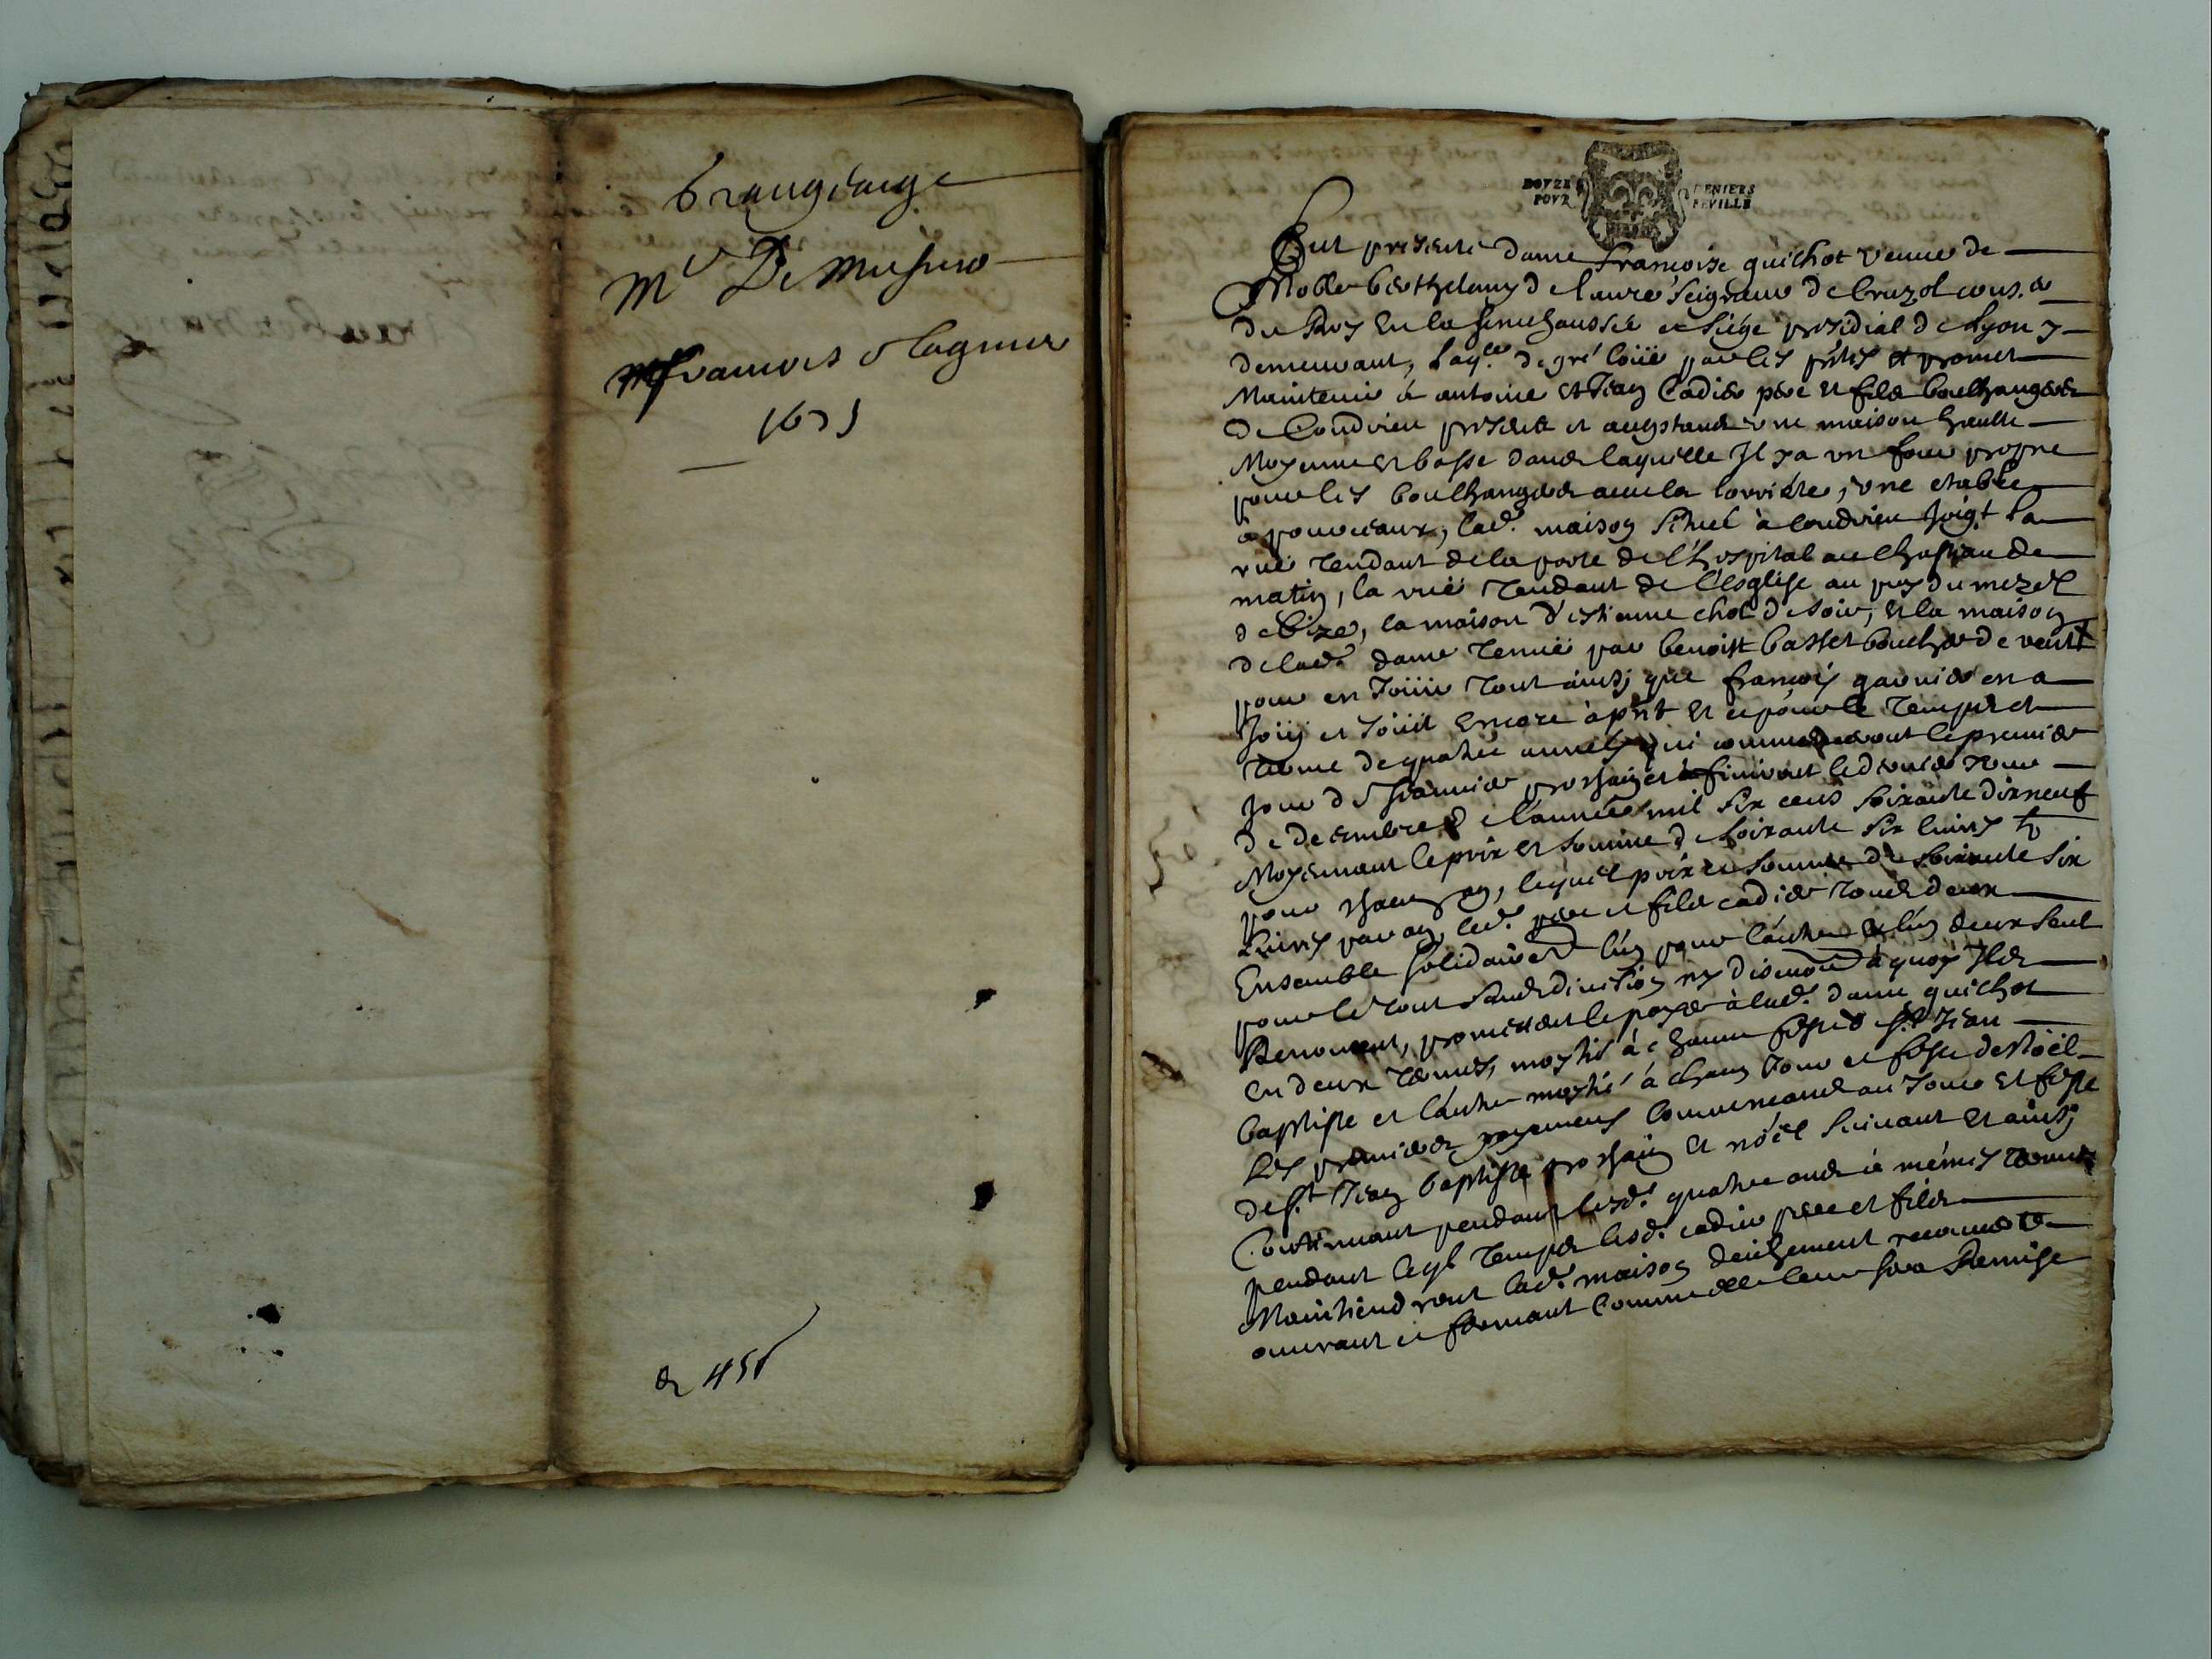 Mr De
françois
1675
DOVZE DENIERS
POVR FEVILLE
Fut presente dame francoise guichot veuve de
Noble berthelemy de laure seigneur de bruzol cons.er
du Roy en la senechaussée et siége presidial de Lyon y
demeurant, laq.lle de gré loüe par les pñtes et promet
Maintenir à antoine et Jean Cadier pere et fils boulhangers
de Condrieu presents et acceptants une maison haulte
Moyenne et basse dans laquelle Il y a un four propre
pour les boulhangers avec la une estable
à pourceaux, lad.e maison située à condrieu joig.t la
rue tendant de la porte de l'hospital au chasteau de
matin, la rue tendant de l'esglise au puy du mezel
de bize, la maison d'estienne chol de soir, et la maison
de lad.e dame tenue par benoist basset boucher de vent
pour en Joüir tout ainsi que françois garnier en a
Joüy et Joüit encore à pñt et ce pour le temps et
terme de quatre années qui commenceront le premier
Jour de Jeanvier prochain et finiront le dernier Jour
de decembre de l'année mil six cens soixante dix neuf
Moyennant le prix et somme de soixante six livres
pour chacun an, lequel prix et somme de soixante six
Livres par an, led. pere et fils cadier tous deux
Ensemble solidaires l'un pour l'autre et l'un deux seul
pour le tout sans division ny discution à quoy Ils
Renoncent, promettent le payer à lad.e dame guichot
en deux termes, moytié à chacune feste St Jean
baptiste et l'autre moytié à chacun Jour et feste de Noël
Les premiers payemens commencans au Jour et feste
de St Jean baptiste prochain et noël suivant et ainsi
Continuant pendant lesd. quatre ans à mémes termes
pendant leql temps lesd. cadier pere et fils
Maintiendront lad.e maison deuhement recouverte
ouvrant et fermant comme elle leur sera Remise